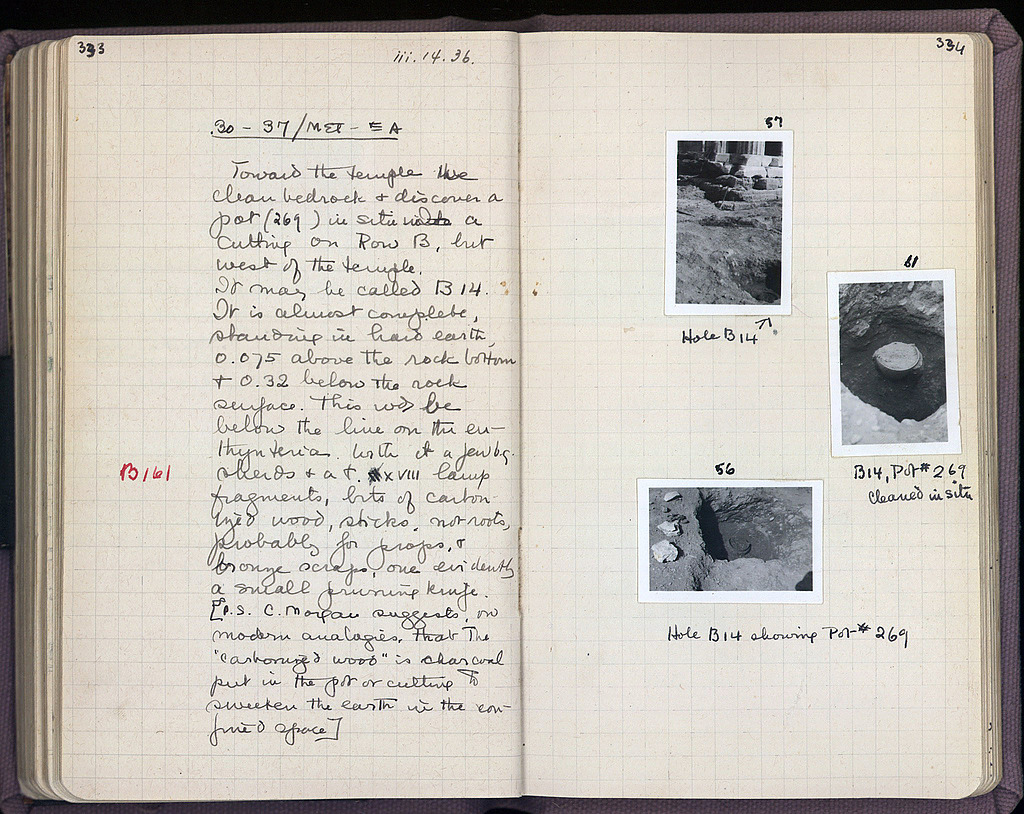 333
iii.14.36.
30 - 37/MET - EA
Toward the temple we
clean bedrock & discover a
pot (269) in situ in a
cutting on Row B, but
west of the temple.
It may be called B 14.
It is almost complete,
standing in hard earth,
0.075 above the rock bottom
& 0.32 below the rock
surface. This wd be
below the line on the eu-
thynteria. With it a few bg.
B161
sherds & a t. XVIII lamp
fragments, bits of carbon-
ized wood, sticks, not roots,
probably for props, &
bronze scraps, one evidently
a small pruning knife.
[P.S. C. Morgan suggests, on
modern analogies, that the
"carbonized wood" is charcoal
put in the pot or cutting to
sweeten the earth in the con-
fined space]
334
57
Hole B14
61
B14, Pot # 269
cleaned in situ
56
Hole B14 showing Pot # 269